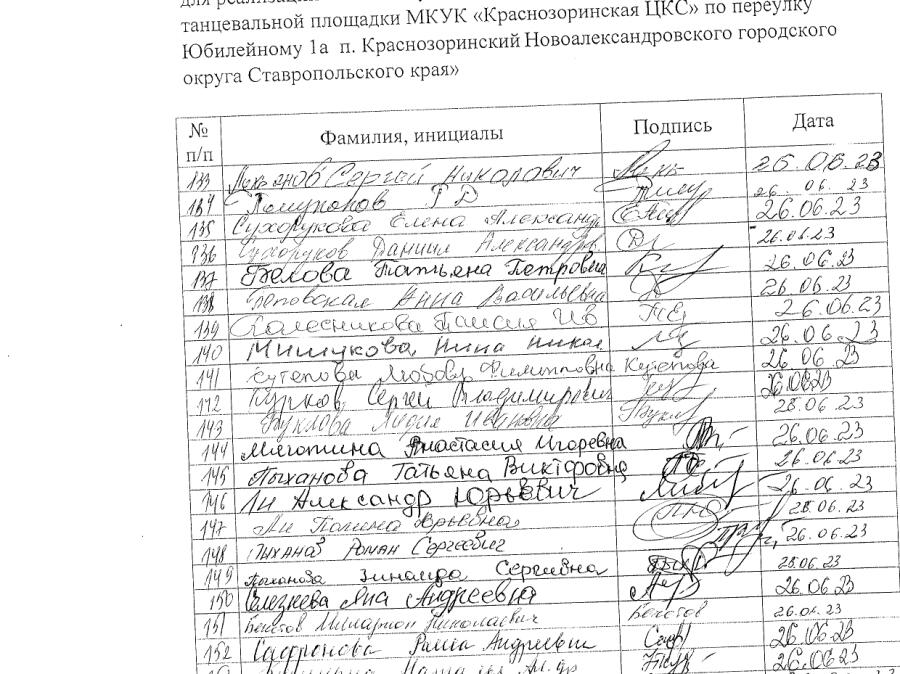 для реализации
танцевальной площадки МКУК «Краснозоринская ЦКС» по переулку
Юбилейному 1а п. Краснозоринский Новоалександровского городского
округа Ставропольского края»
№ п/п Фамилия, инициалы Подпись Дата
133 Сергей Николович 26.06.23
134 Р Д 26. 06. 23
135 Сухорукова Елена Александр 26.06.23
136 Сухоруков Даниил Александров 26.06.23
137 Белова Татьяна Петровна 26.06.23
138 Анна Васильевна 26.06.23
139 Калесникова Таисия Ив 26.06.23
140 Мишукова Нина Никол 26.06.23
141 Кутепова Любовь Филипповна Кутепова 26.06.23
142 Сергей Владимирович 26.06.23
143 Буклова Лидия Ивановна 26.06.23
144 Анастасия Игоревна 26.06.23
145 Пыханова Татьяна Викторовна 26.06.23
146 Ли Александр Юрьевич 26.06.23
147 Ли Полина Юрьевна 26.06.23
148 Пыханов Роман Сергеевич 26.06.23
149 Пыханова Зинаида Сергеевна 26.06.23
150 Селезнева Яна Андреевна 26.06.23
151 Бекетов Илларион Николаевич Бекетов 26.06.23
152 Андреевич 26.06.23
26.06.23